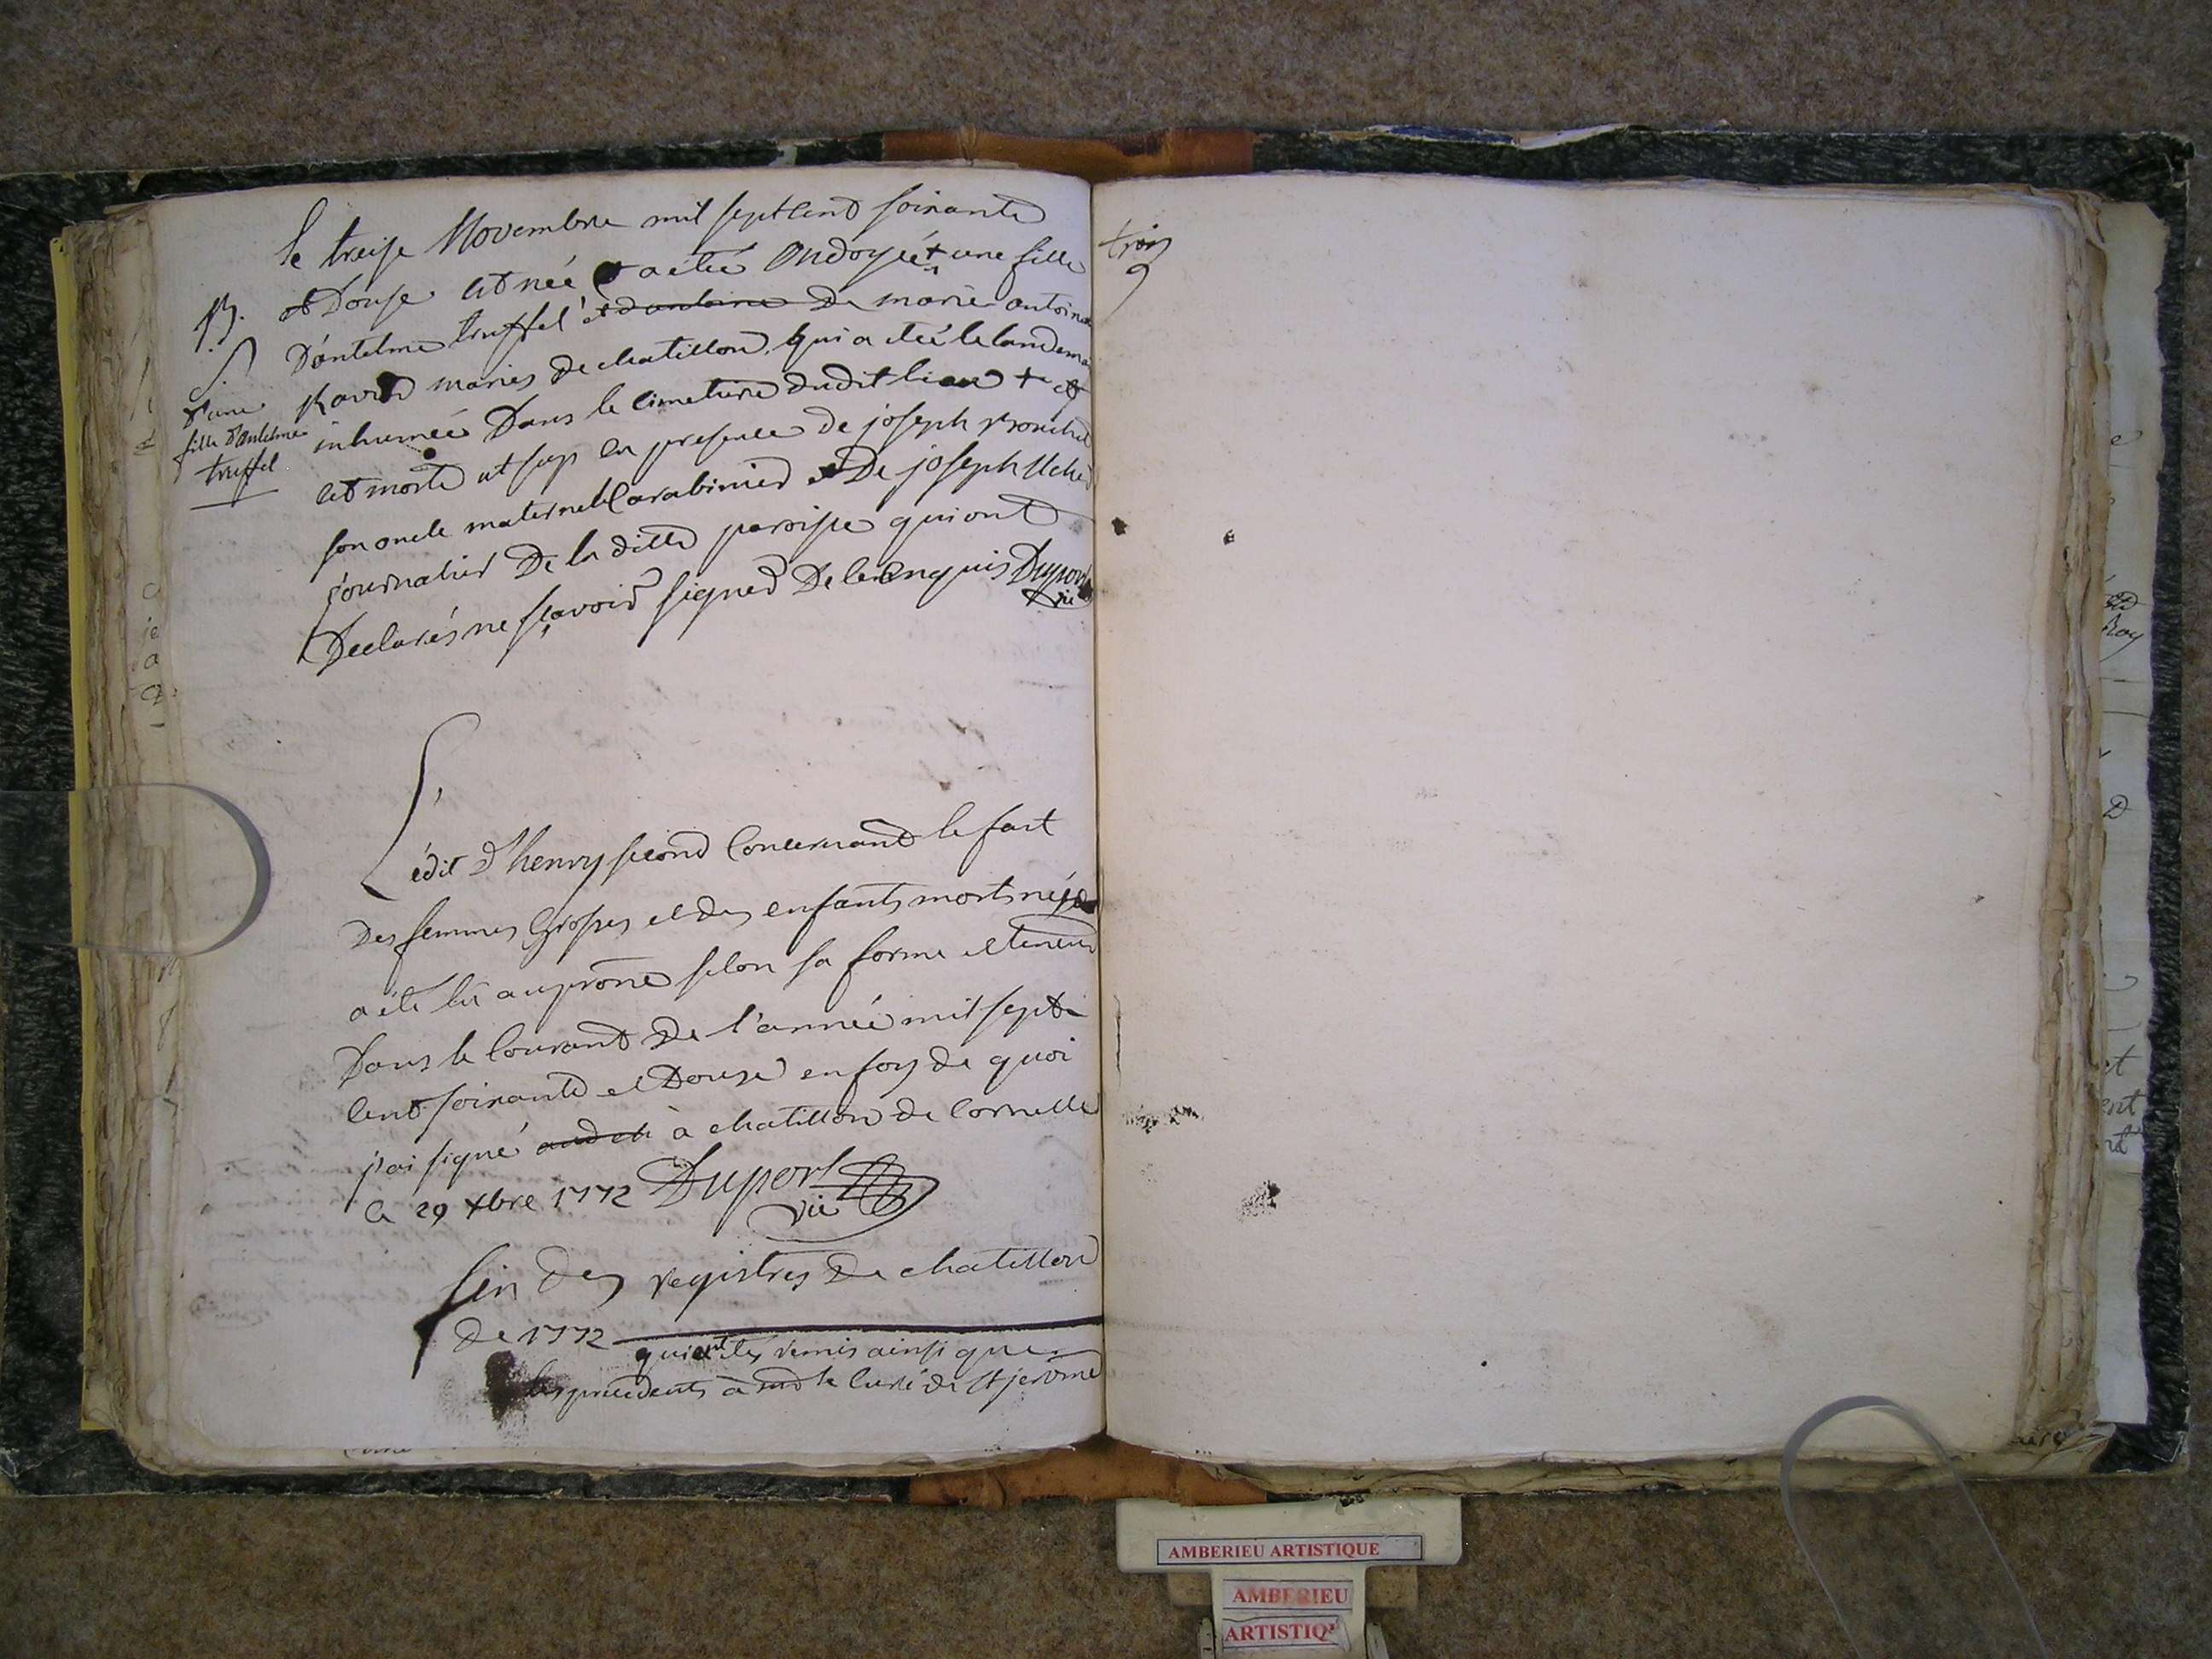 le treise Novembre mil sept cent soixante
et Douse est née et a etée Ondoyée + une fille
D'antelme truffel et d'antoine De marie antoin
mariés de chatillon, qui a eteé le landema
inhumée Dans le cimetiere dudit lieu + et
est morte ut sup en presence de joseph
son oncle maternel Carabinier et De joseph
journalier De la ditte paroisse qui ont
Declarés ne sçavoir signer De ce enquis Duport
vic
B.
S.
d'une
fille d'antelme
truffel
L'édit d'henry second Concernant le fait
Des femmes Grosses et des enfants morts nés
a été lu au prône selon sa forme et teneur
Dans le Courant De l'année mil sept
Cent soixante et Douse en foy de quoi
j'ai signé à chatillon de Cornelle
ce 29 xbre 1772 Duport
vic
fin des registres De chatillon
de 1772
qui ont étés remis ainsi que
les précédents à le Curé de St jerôme
AMBERIEU ARTISTIQUE
AMBERIEU
ARTISTIQ